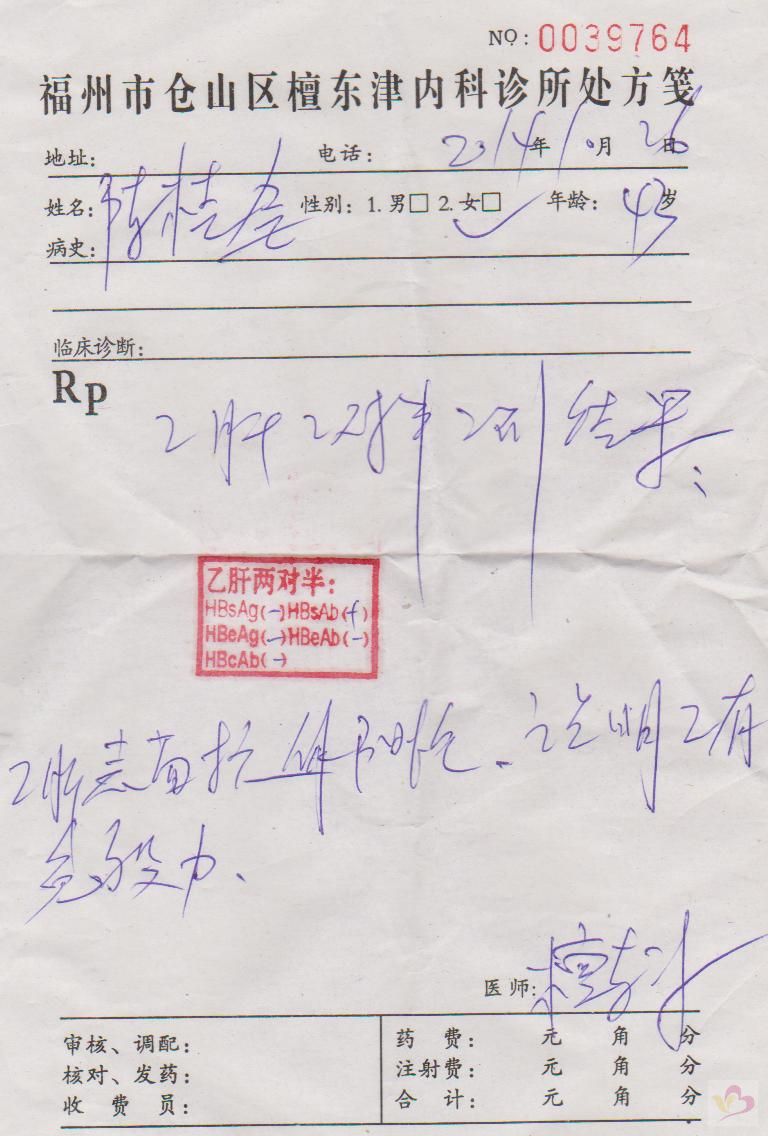 NO: 0039764
福州市仓山区檀东津内科诊所处方笺
地址: 电话: 2014年10月26日
姓名: 陈桂 性别: 1. 男□ 2. 女□ ✓ 年龄: 43岁
病史:
临床诊断:
Rp
乙肝 对半 结果:
乙肝两对半:
HBsAg(-)HBsAb(+)
HBeAg(-)HBeAb(-)
HBcAb(-)
乙肝表面抗体阳性、说明已有
免疫力、
医师: 檀东津
审核、调配: 药 费: 元 角 分
核对、发药: 注射费: 元 角 分
收 费 员: 合 计: 元 角 分